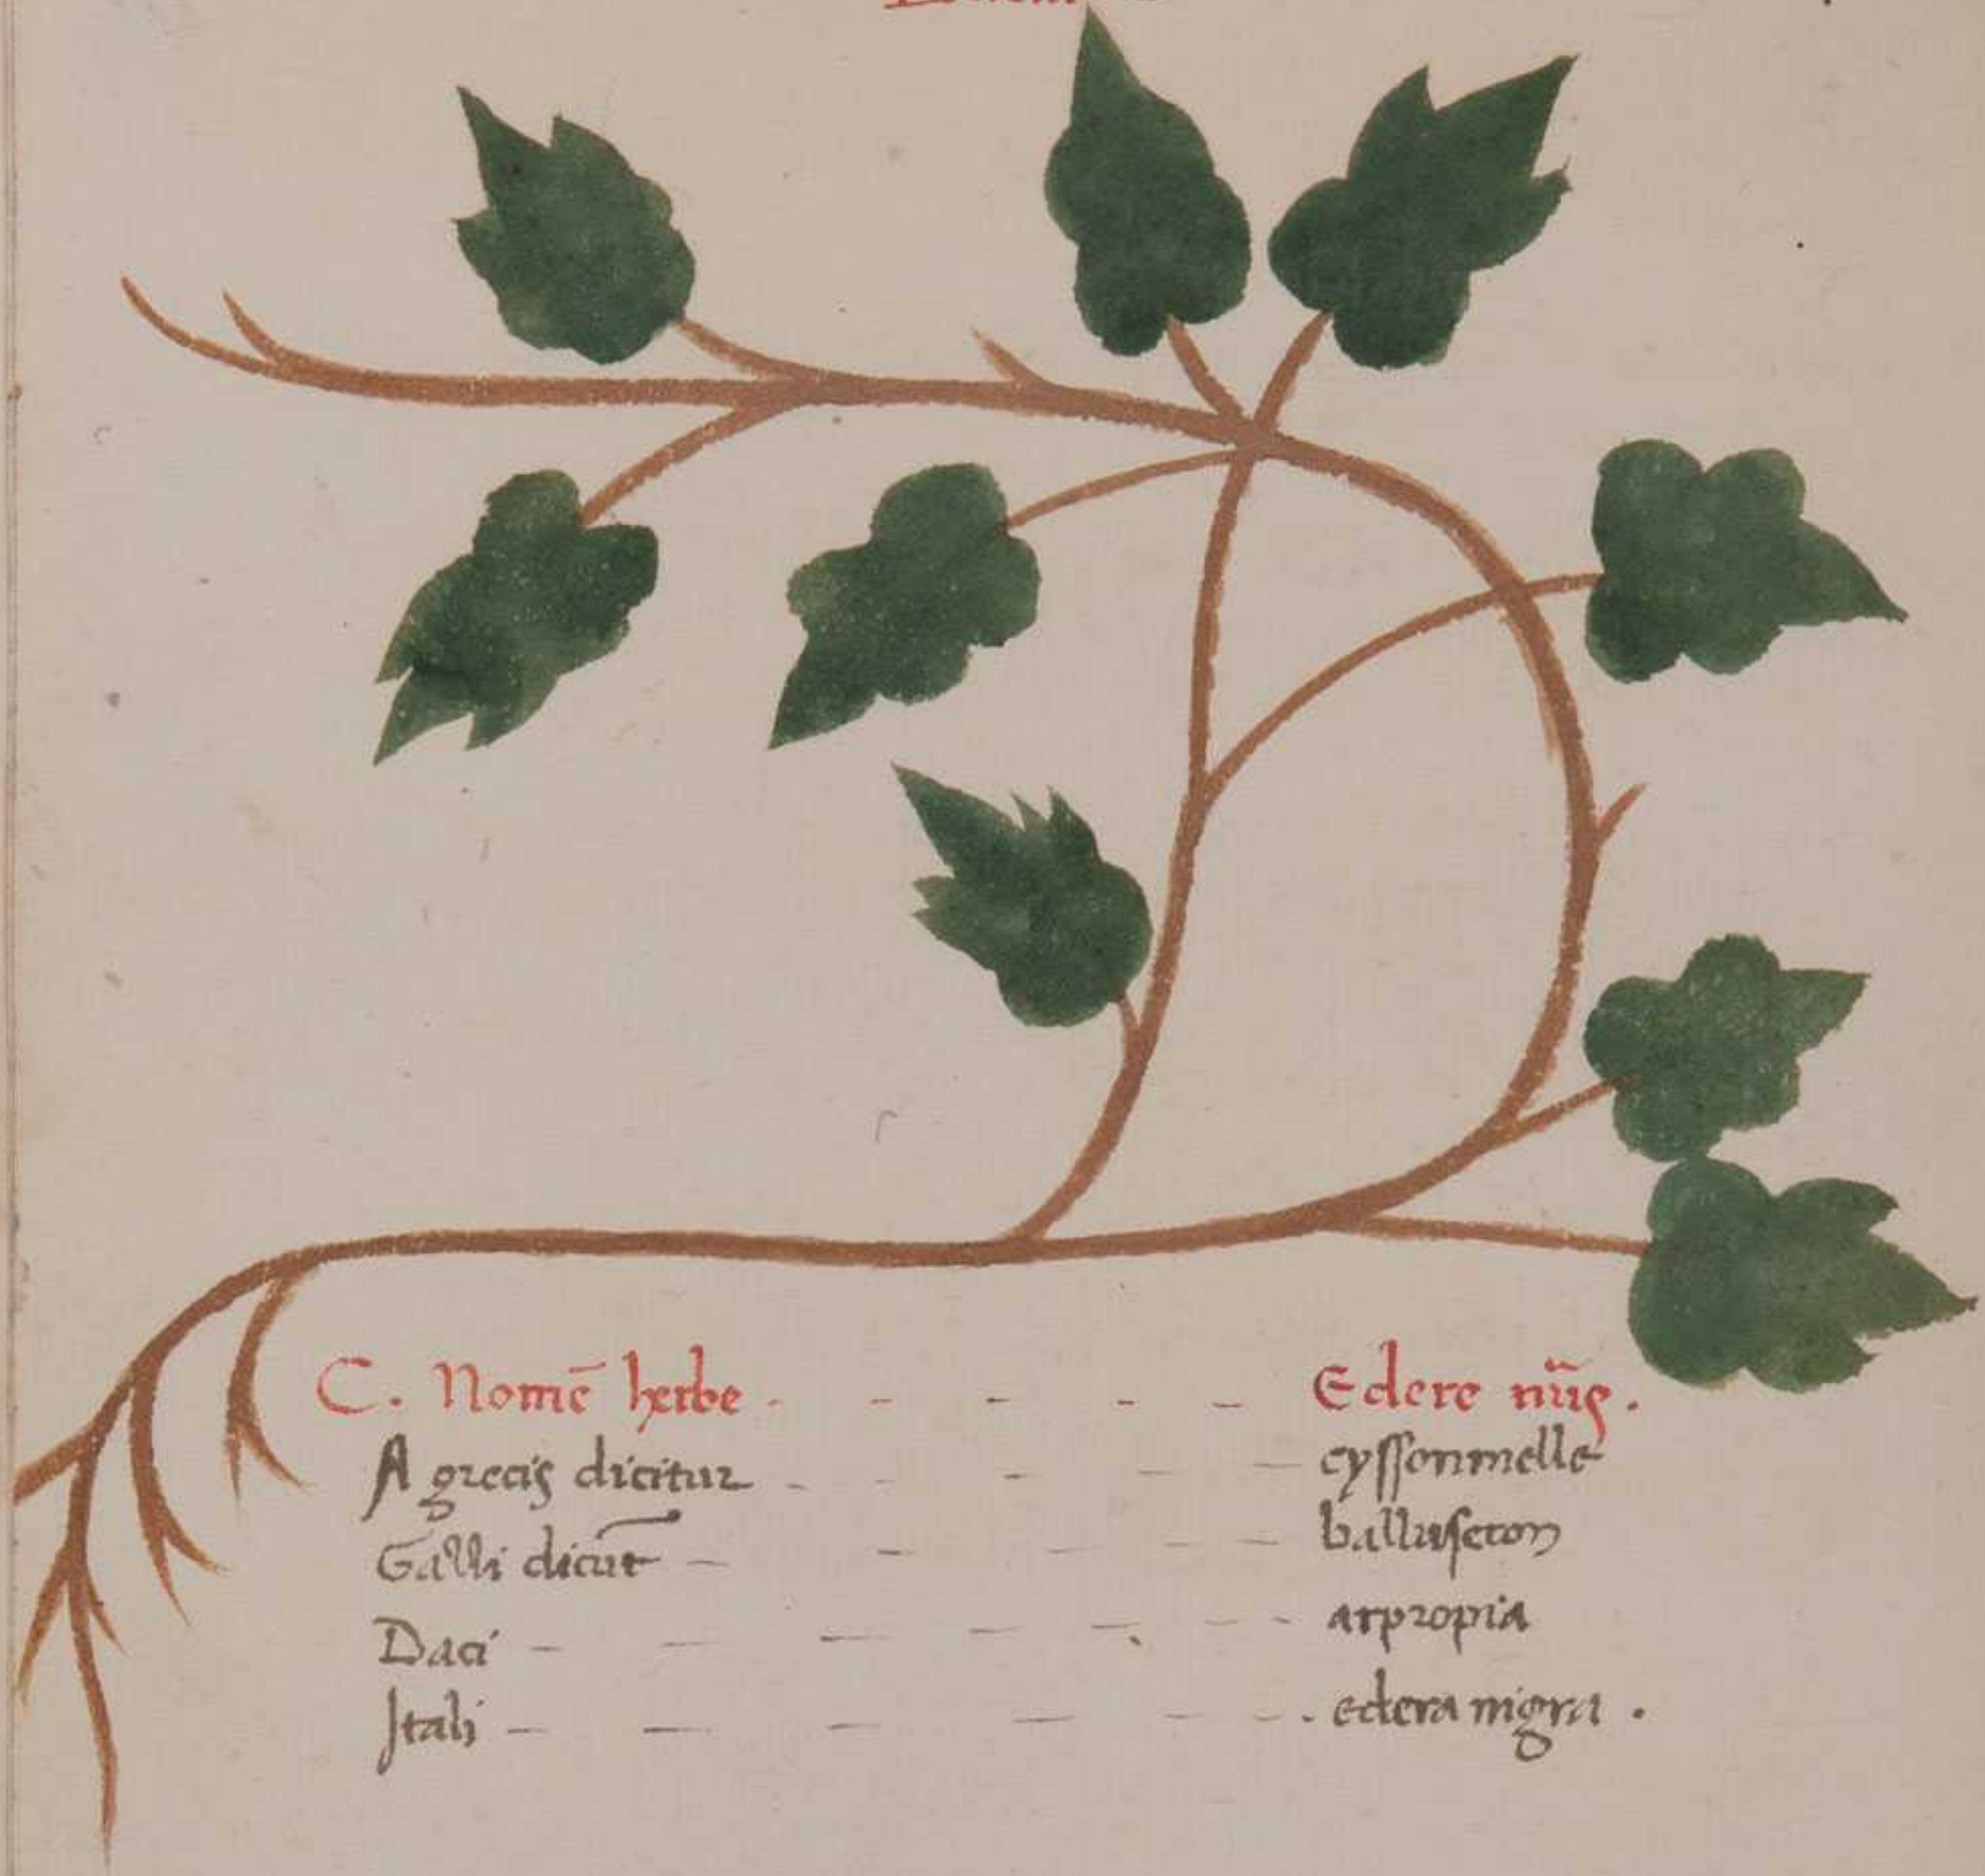 C. Nomē herbe - - - - - Edere nr̃is.
A grecis dicitur - - - - cyssonmelle
Galli dicūt - - - - - balluseton
Daci - - - - - - - arpropia
Itali - - - - - - - edera nigra.